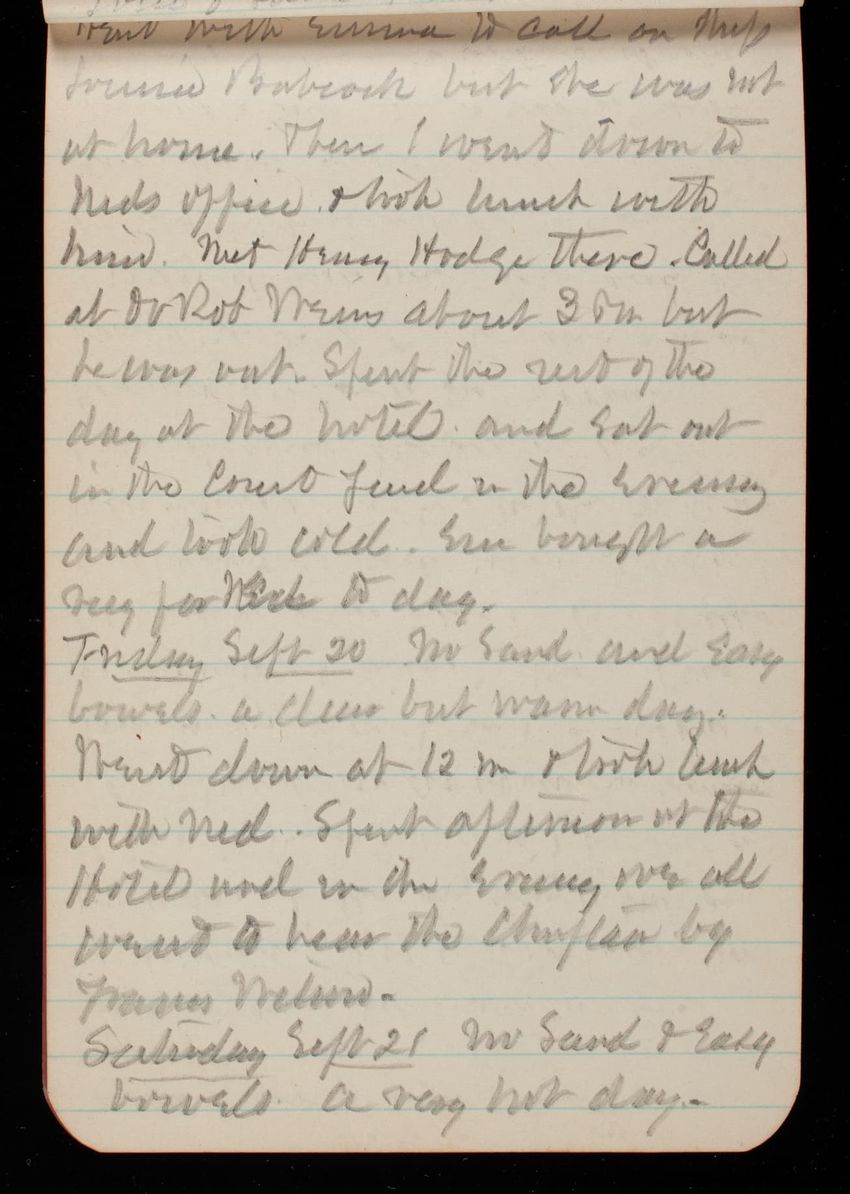 Went with Emma to call on Miss
Babcock but she was not
at home. Then I went down to
Neds office & took lunch with
him. Met Henry Hodge there. Called
at Dr Rob Weirs about 3 PM but
he was out. Spent the rest of the
day at the hotel. and sat out
in the Court Yard in the Evening
and took cold. Em bought a
rug for to day.
Friday Sept 20 No Sand and Easy
bowels. a clear but warm day.
Went down at 12 m & took lunch
with Ned. Spent afternoon at the
Hotel and in the Evening we all
went to hear the Chieftain by
Francis Wilson.
Saturday Sept 21 No Sand & Easy
bowels. a very hot day.